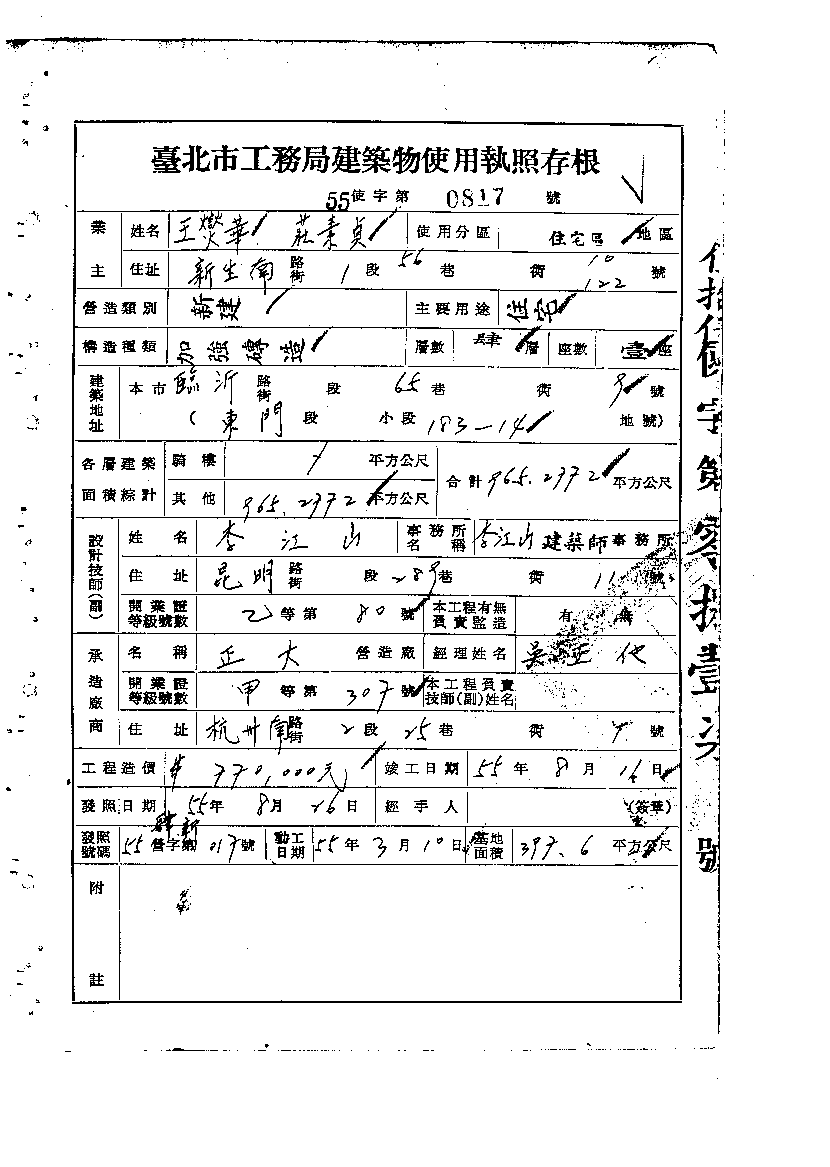 臺北市工務局建築物使用執照存根
55使字第 0817 號
業主 姓名 王燮華 莊素貞 使用分區 住宅區 地區
住址 新生南 路街 1 段 56 巷 衖 10 122 號
營造類別 新建 主要用途 住宅
構造種類 加強磚造 層數 肆 層 座數 壹 座
建築地址 本市 臨沂 路街 段 65 巷 衖 9 號
(東門 段 小段 183-14 地號)
各層建築面積綜計 騎樓 平方公尺 合計 965.2772 平方公尺
其他 965.2772 平方公尺
設計技師(副) 姓名 李江山 事務所名稱 李江山建築師事務所
住址 昆明 路街 段 289 巷 衖 11 號
開業證等級號數 乙等第 80 號 本工程有無負責監造 有 無
承造廠商 名稱 正大 營造廠 經理姓名 吳
開業證等級號數 甲等第 307 號 本工程負責技師(副)姓名
住址 杭州南 路街 2 段 25 巷 衖 號
工程造價 770,000元 竣工日期 55年8月16日
發照日期 55年8月26日 經手人 (簽章)
發照號碼 55 營字第 017 號 動工日期 55年3月10日 基地面積 397.6 平方公尺
附註
字第零拾壹 號